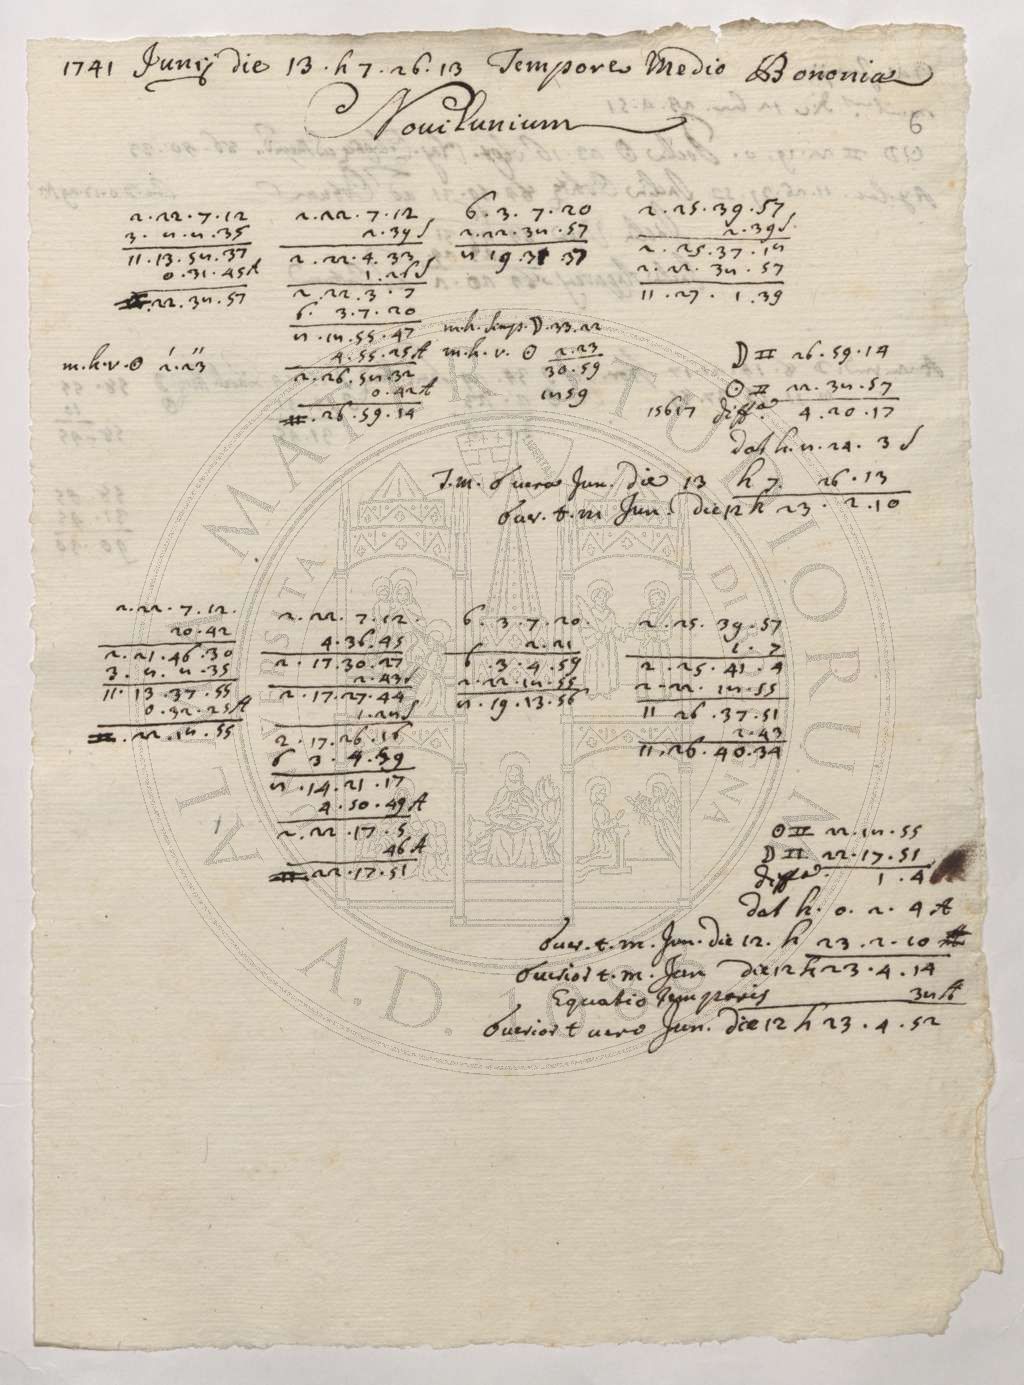 1741 Junij die 13 . h 7 . 26 . 13 Tempore Medio Bononiae
Novilunium
6
2 . 22 . 7 . 12
3 . 8 . 8 . 35
11 . 13 . 58 . 37
0 . 31 . 45 A
♊ . 22 . 38 . 57
m . h . v . ☉ 2' . 23''
2 . 22 . 7 . 12
2 . 39 S
2 . 22 . 4 . 33
1 . 26 S
2 . 22 . 3 . 7
6 . 3 . 7 . 20
8 . 18 . 55 . 47
4 . 55 . 25 A
2 . 26 . 58 . 32
0 . 42 A
♊ . 26 . 59 . 14
6 . 3 . 7 . 20
2 . 22 . 38 . 57
8 19 . 31 37
m . h . simp . ☽ . 33 . 22
m . h . v . ☉ 2 . 23
30 . 59
1859
2 . 25 . 39 . 57
2 . 39 S
2 . 25 . 37 . 18
2 . 22 . 38 . 57
11 . 27 . 1 . 39
☽ ♊ 26 . 59 . 14
☉ ♊ 22 . 38 . 57
15617 diffa 4 . 20 . 17
dat h . 8 . 24 . 3 S
T . m . σ Jun . die 13 h 7 . 26 . 13
σ ver . t . m Jun . die 12 h 23 . 2 . 10
2 . 22 . 7 . 12 .
20 . 42
2 . 21 . 46 . 30
3 . 8 . 8 . 35
11 . 13 . 37 . 55
0 . 32 . 25 A
♊ . 22 . 18 . 55
2 . 22 . 7 . 12 .
4 . 36 . 45
2 . 17 . 30 . 27
2 . 43 S
2 . 17 . 27 . 44
1 . 28 S
2 . 17 . 26 . 16
6 3 . 4 . 59
8 . 14 . 21 . 17
4 . 50 . 49 A
2 . 22 . 17 . 5
46 A
♊ . 22 . 17 . 51
6 . 3 . 7 . 20 .
2 . 21
6 . 3 . 4 . 59
2 . 22 . 18 . 55
8 . 19 . 13 . 56
2 . 25 . 39 . 57
1 . 7
2 . 25 . 41 . 4
2 . 22 . 18 . 55
11 26 . 37 . 51
2 . 43
11 . 26 . 40 . 34
☉ ♊ 22 . 18 . 55
☽ ♊ 22 . 17 . 51
diffa . 1 . 4
dat h . 0 . 2 . 4 A
σ ver . t . m . Jun . die 12 . h 23 . 2 . 10
σ verior t . m . Jun die 12 h 23 . 4 . 14
Equatio Temporis 38 A
σ verior t vero Jun . die 12 h 23 . 4 . 52
ALMA MATER STUDIORUM
UNIVERSITÀ DI BOLOGNA
A.D. 1088